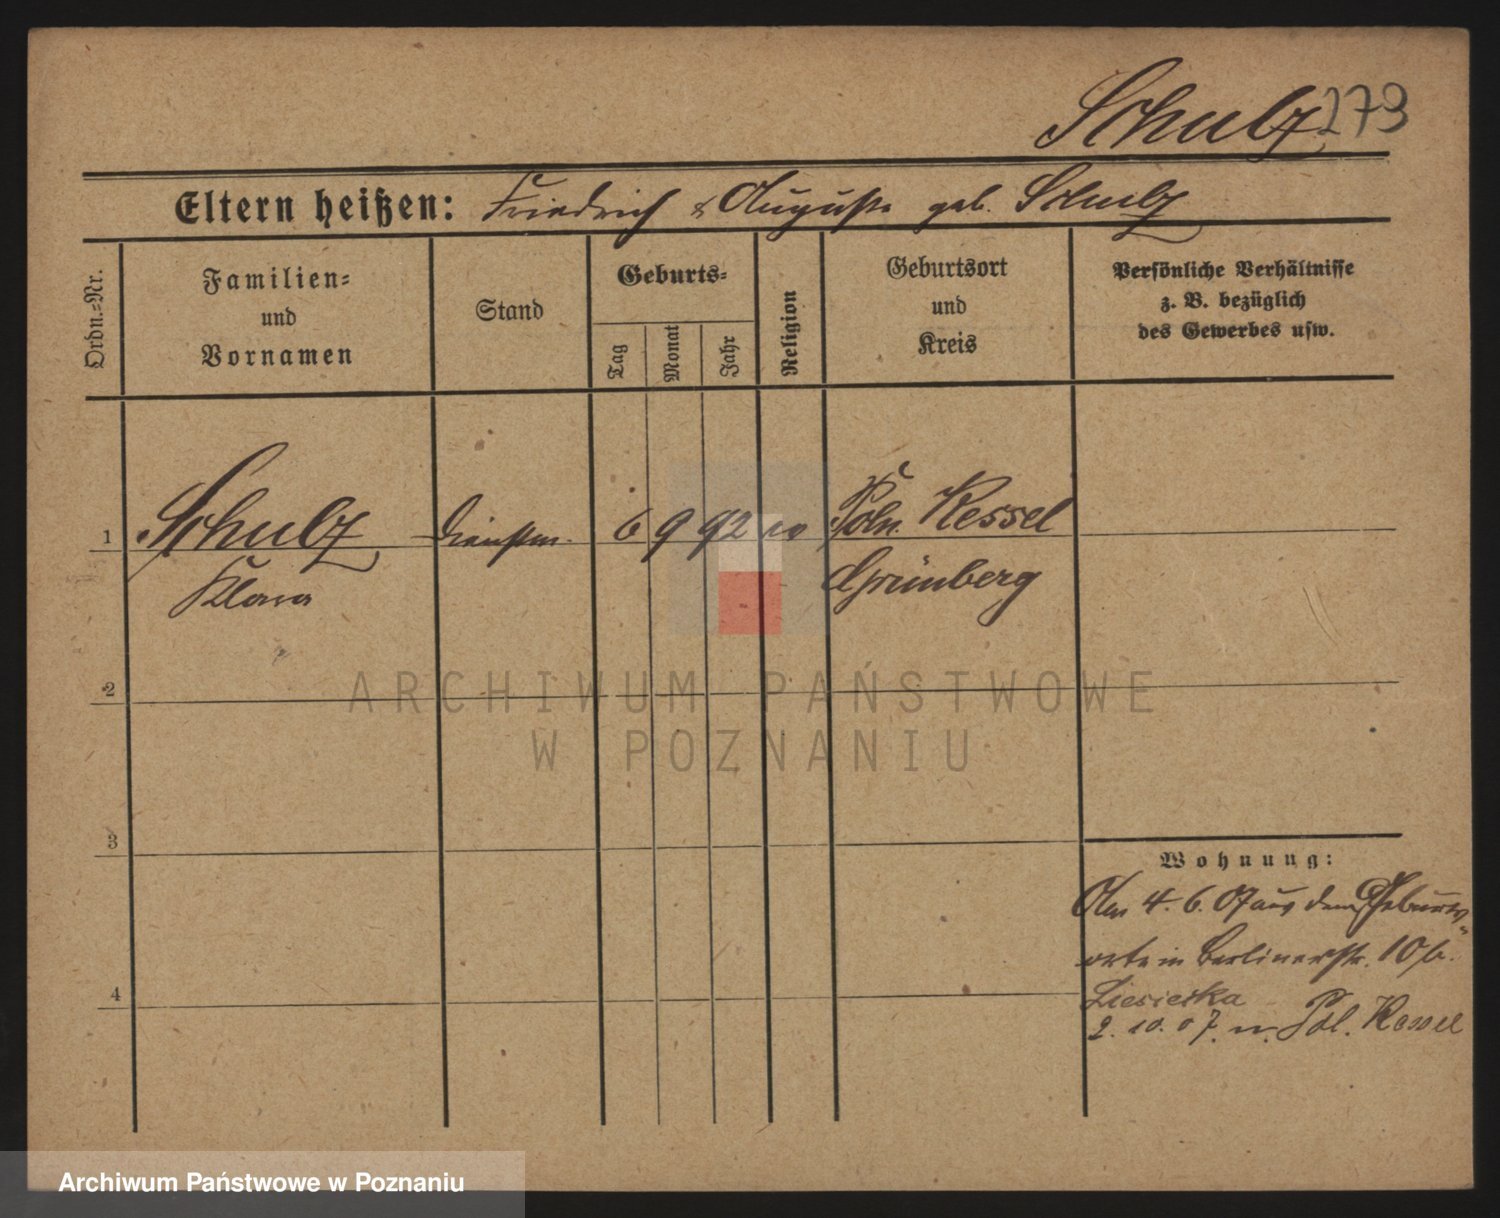 Schulz 273
Eltern heißen: Friedrich & Auguste geb. Schulz
Ordn.-Nr.
Familien-
und
Vornamen
Stand
Geburts-
Tag
Monat
Jahr
Religion
Geburtsort
und
Kreis
Persönliche Verhältnisse
z. B. bezüglich
des Gewerbes usw.
1 Schulz Dienstm. 6 9 92 ev Poln. Kessel
Klara Grünberg
2
ARCHIWUM PAŃSTWOWE
W POZNANIU
3
Wohnung:
Am 4. 6. 07 aus dem Geburts-
orte in Berlinerstr. 10 b.
4
2. 10. 07. n. Pol. Kessel
Archiwum Państwowe w Poznaniu